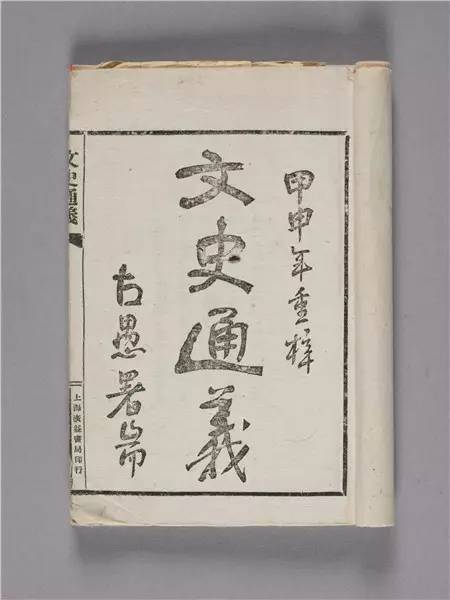 甲申年重梓
文史通義
古愚署耑
文史通義
上海廣益書局印行